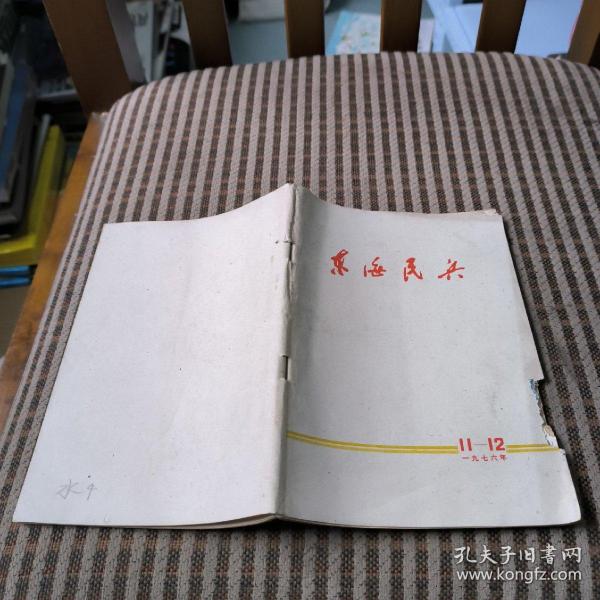 东海民兵
11-12
一九七六年
水4
孔夫子旧书网
www.kongfz.com